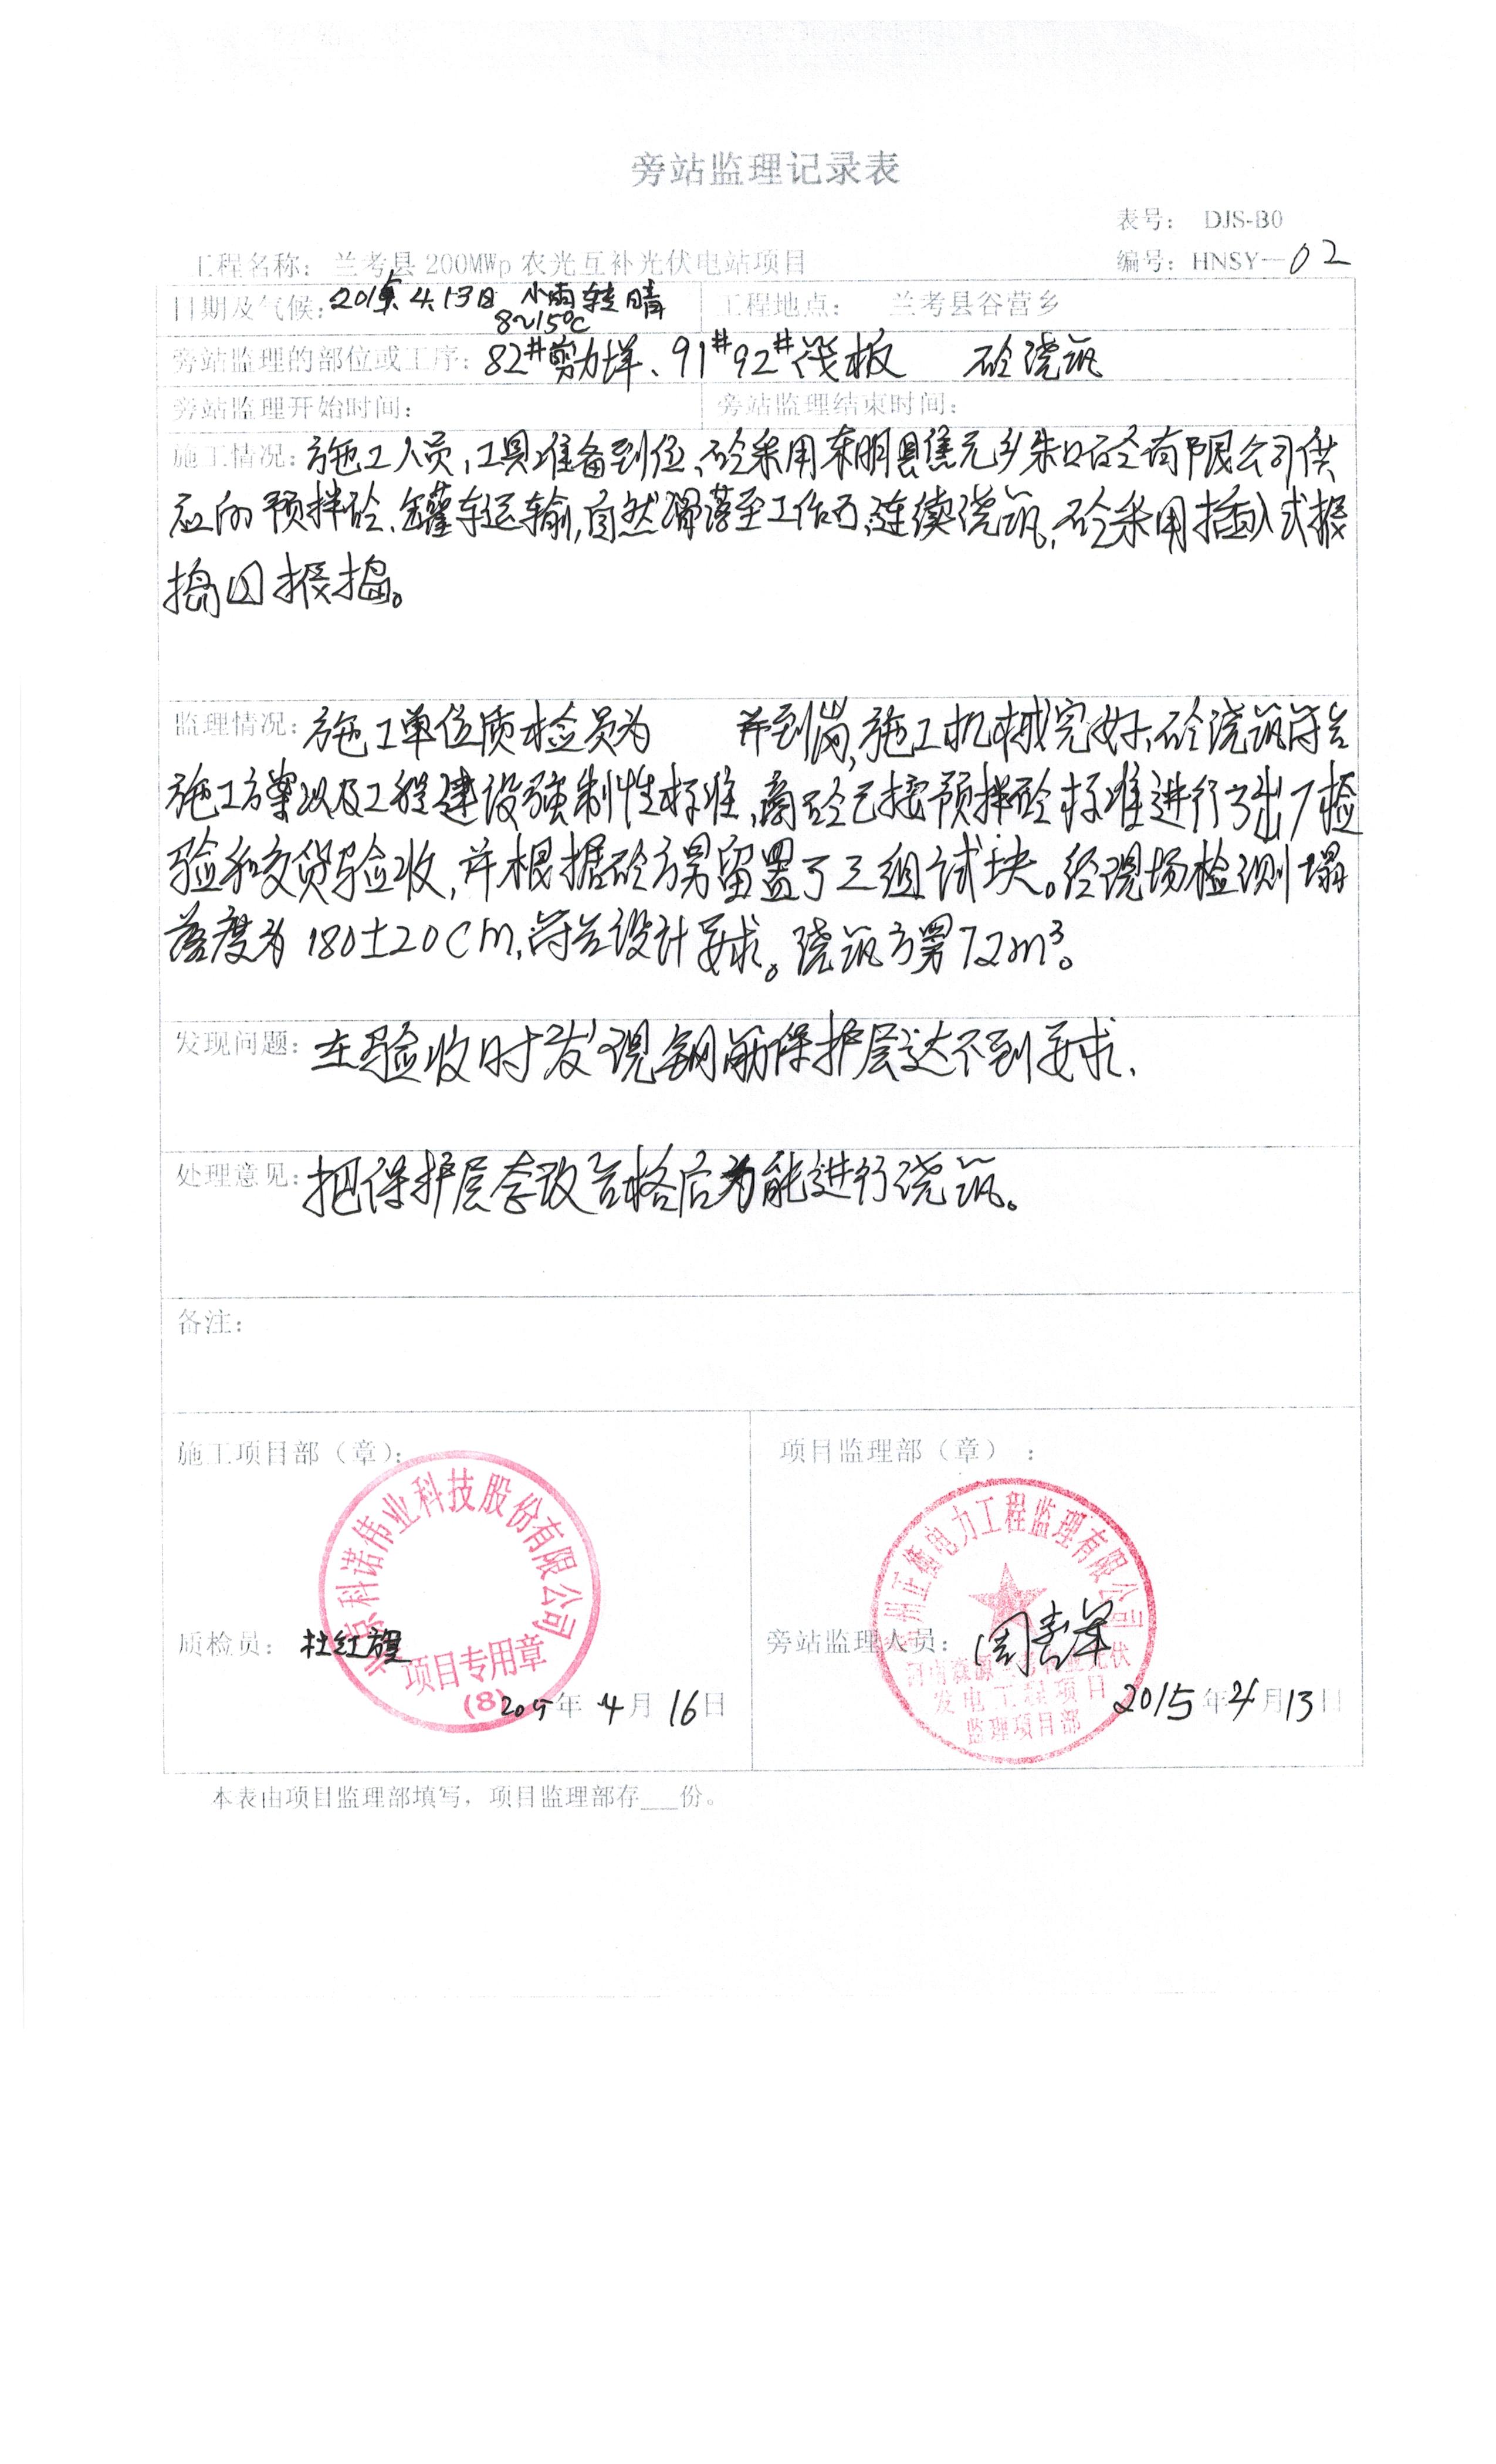 旁站监理记录表
表号： DJS-B0
工程名称：兰考县 200MWp 农光互补光伏电站项目 编号：HNSY—02
日期及气候：2015年.4.13日 小雨转晴 工程地点： 兰考县谷营乡
8~15℃
旁站监理的部位或工序：82#剪力墙、91#92#筏板 砼浇筑
旁站监理开始时间： 旁站监理结束时间：
施工情况：施工人员，工具准备到位、砼采用东明县焦元乡朱口砼有限公司供
应的预拌砼、罐车运输，自然滑落至工作面，连续浇筑，砼采用插入式振
捣 振捣。
监理情况：施工单位质检员为 并到岗，施工机械完好、砼浇筑符合
施工方案以及工程建设强制性标准、商砼已按预拌砼标准进行了出厂检
验和交货验收，并根据砼方量留置了三组试块。经现场检测塌
落度为180±20cm，符合设计要求。浇筑方量72m³。
发现问题：在验收时发现钢筋保护层达不到要求、
处理意见：把保护层整改合格后方能进行浇筑。
备注：
施工项目部（章）： 项目监理部（章）：
北京科诺伟业科技股份有限公司
项目专用章
(8)
郑州正衡电力工程监理有限公司
发电工程项目
监理项目部
质检员：杜红旗 旁站监理人员：
2015年4月16日 2015年4月13日
本表由项目监理部填写，项目监理部存___份。